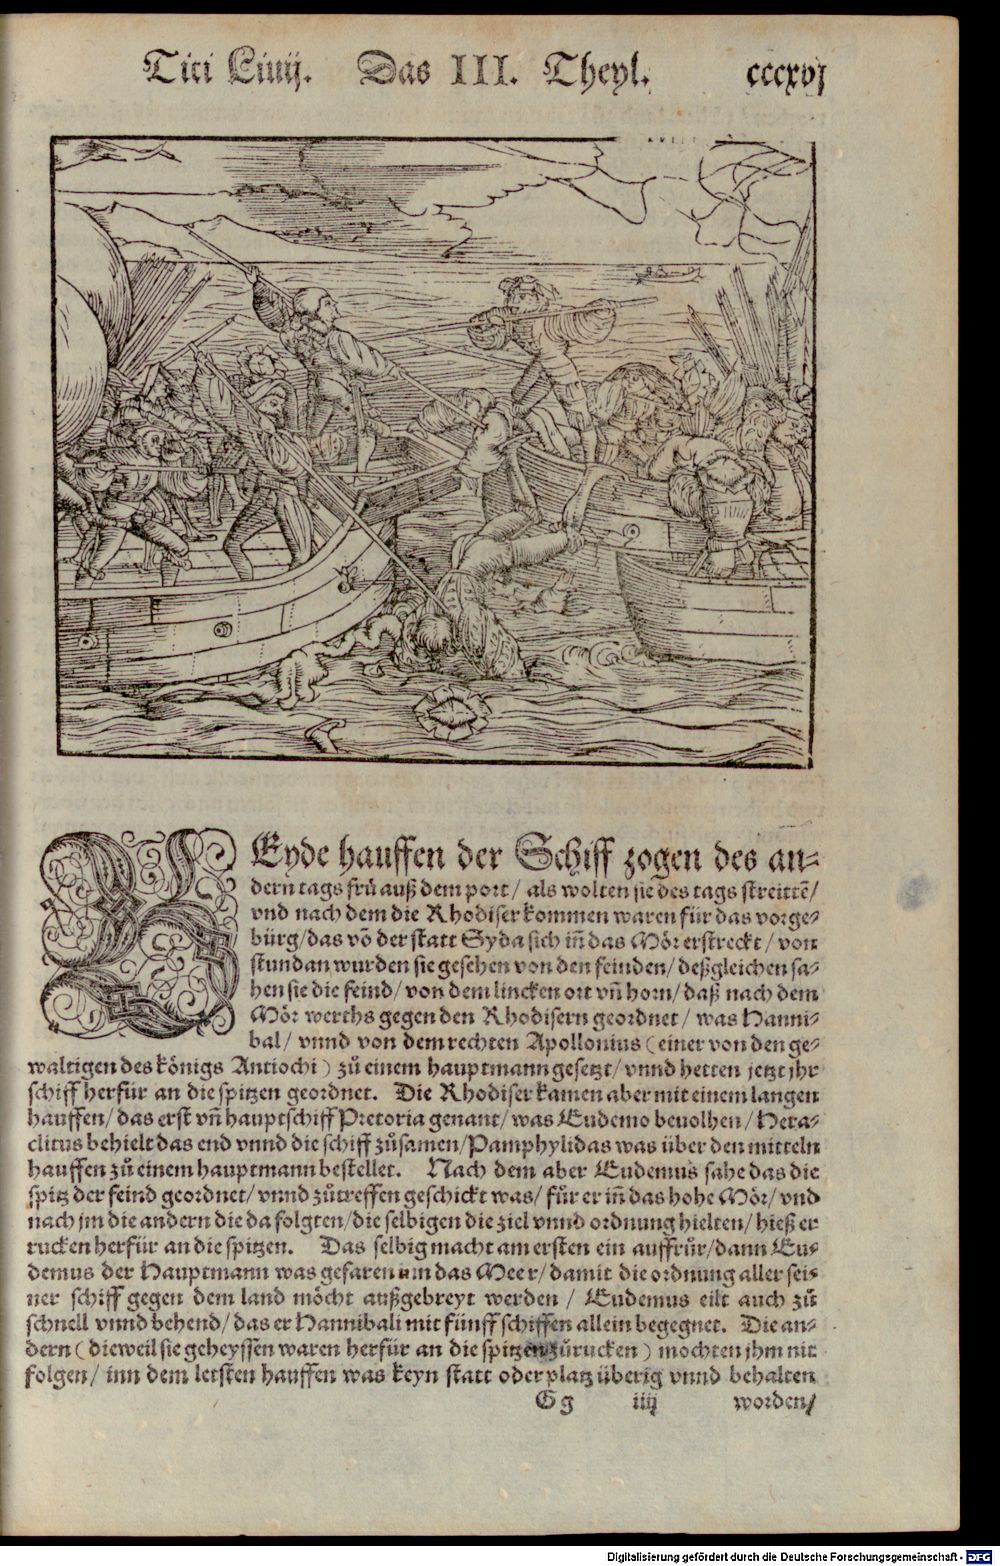 Titi Liuij. Das III. Theyl. cccxvj
BEyde hauffen der Schiff zogen des an-
dern tags frü auß dem port / als wolten sie des tags streittē /
vnd nach dem die Rhodiser kommen waren für das vorge-
bürg / das vō der statt Syda sich iñ das Mör erstreckt / von
stund an wurden sie gesehen von den feinden / deßgleichen sa-
hen sie die feind / von dem lincken ort vñ horn / daß nach dem
Mör werths gegen den Rhodisern geordnet / was Hanni-
bal / vnnd von dem rechten Apollonius (einer von den ge-
waltigen des königs Antiochi) zů einem hauptmann gesetzt / vnnd hetten jetzt jhr
schiff herfür an die spitzen geordnet. Die Rhodiser kamen aber mit einem langen
hauffen / das erst vñ hauptschiff Pretoria genant / was Eudemo beuolhen / Hera-
clitus behielt das end vnnd die schiff zůsamen / Pamphylidas was über den mitteln
hauffen zů einem hauptmann bestellet. Nach dem aber Eudemus sahe das die
spitz der feind geordnet / vnnd zůtreffen geschickt was / fůr er iñ das hohe Mör / vnd
nach jm die andern die da folgten / die selbigen die ziel vnnd ordnung hielten / hieß er
rucken herfür an die spitzen. Das selbig macht am ersten ein auffrůr / dann Eu-
demus der Hauptmann was gefaren inn das Meer / damit die ordnung aller sei-
ner schiff gegen dem land möcht außgebreyt werden / Eudemus eilt auch zů
schnell vnnd behend / das er Hannibali mit fünff schiffen allein begegnet. Die an-
dern (dieweil sie geheyssen waren herfür an die spitzen zůrucken) mochten jhm nit
folgen / inn dem letsten hauffen was keyn statt oder platz überig vnnd behalten
Gg iiij worden /
Digitalisierung gefördert durch die Deutsche Forschungsgemeinschaft - DFG